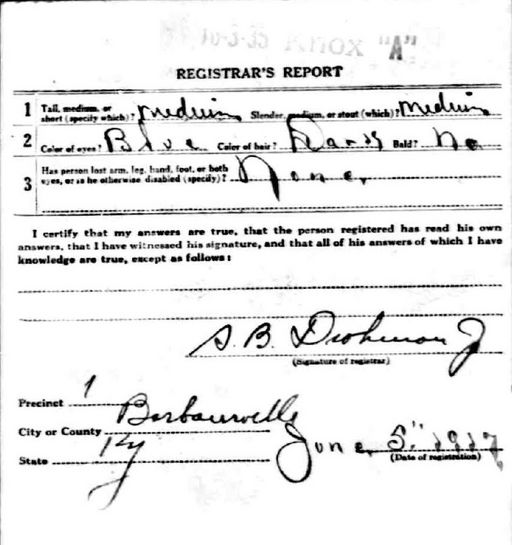 "A"
REGISTRAR'S REPORT
1 Tall, medium, or short (specify which)? Medium Slender, medium, or stout (which)? Medium
2 Color of eyes? Blue Color of hair? Dark Bald? No
3 Has person lost arm, leg, hand, foot, or both eyes, or is he otherwise disabled (specify)? None.
I certify that my answers are true, that the person registered has read his own
answers, that I have witnessed his signature, and that all of his answers of which I have
knowledge are true, except as follows:
S. B. Dishman Jr
(Signature of registrar)
Precinct 1
City or County Barbourville
State Ky
June 5" 1917
(Date of registration)